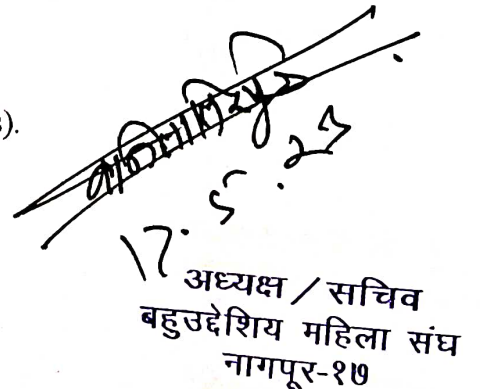 ).
17.5.23
अध्यक्ष / सचिव
बहुउद्देशिय महिला संघ
नागपूर-१७